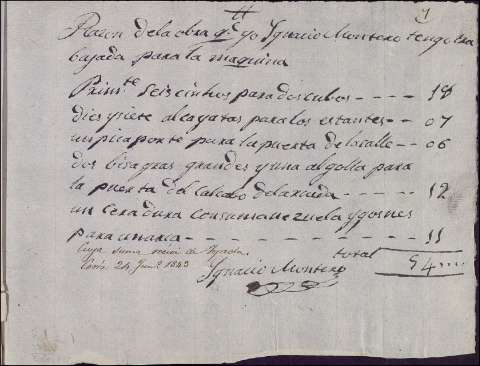 Razon de la obra qe yo Ygnacio Montero tengo tra
bajada para la maquina
Primte seis cinchos para dos cubos - - - - 18
dies y siete alcayatas para los estantes - - 07
un picaporte para la puerta de la calle - - 06
dos bisagras grandes y una algolla para
la puerta del de la rueda - - - - - 12
un ceradura con su manezuela y gosnes
para una - - - - - - - - - 11
total 54
Cuya suma recivi de
24 Junio 1843
Ygnacio Montero